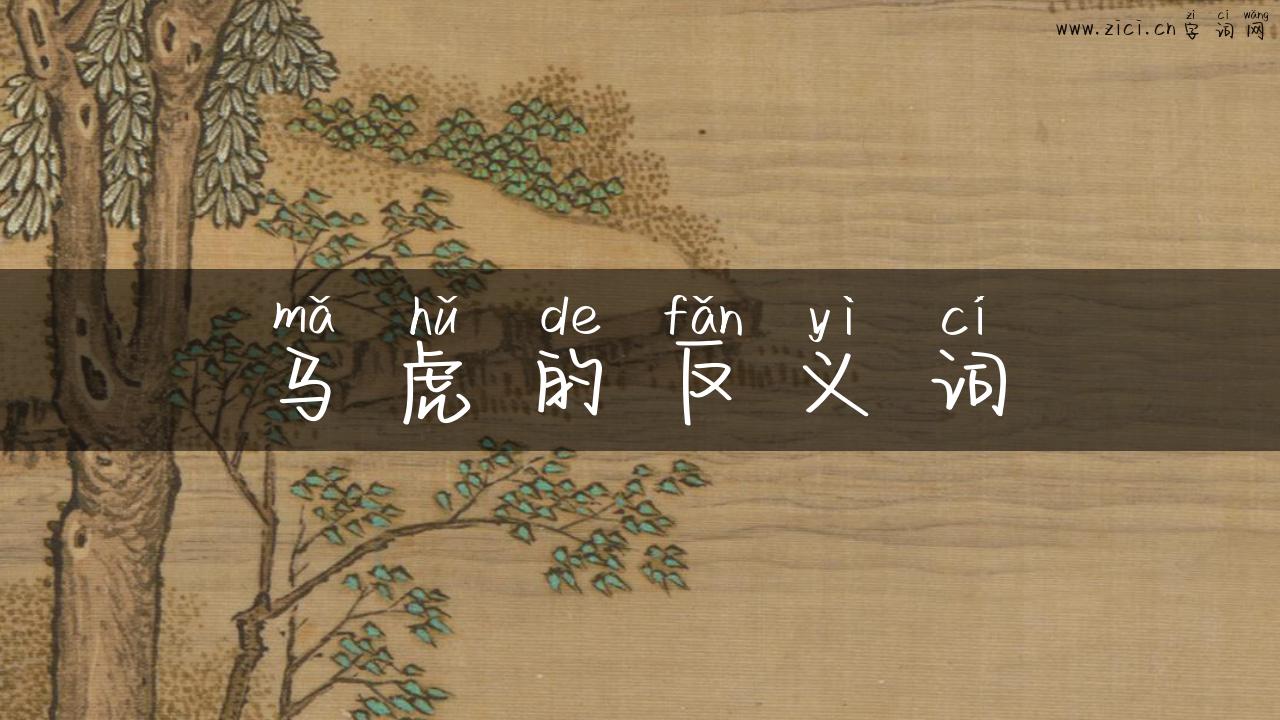 zì cí wǎng
www.zici.cn 字词网
mǎ hǔ de fǎn yì cí
马虎的反义词